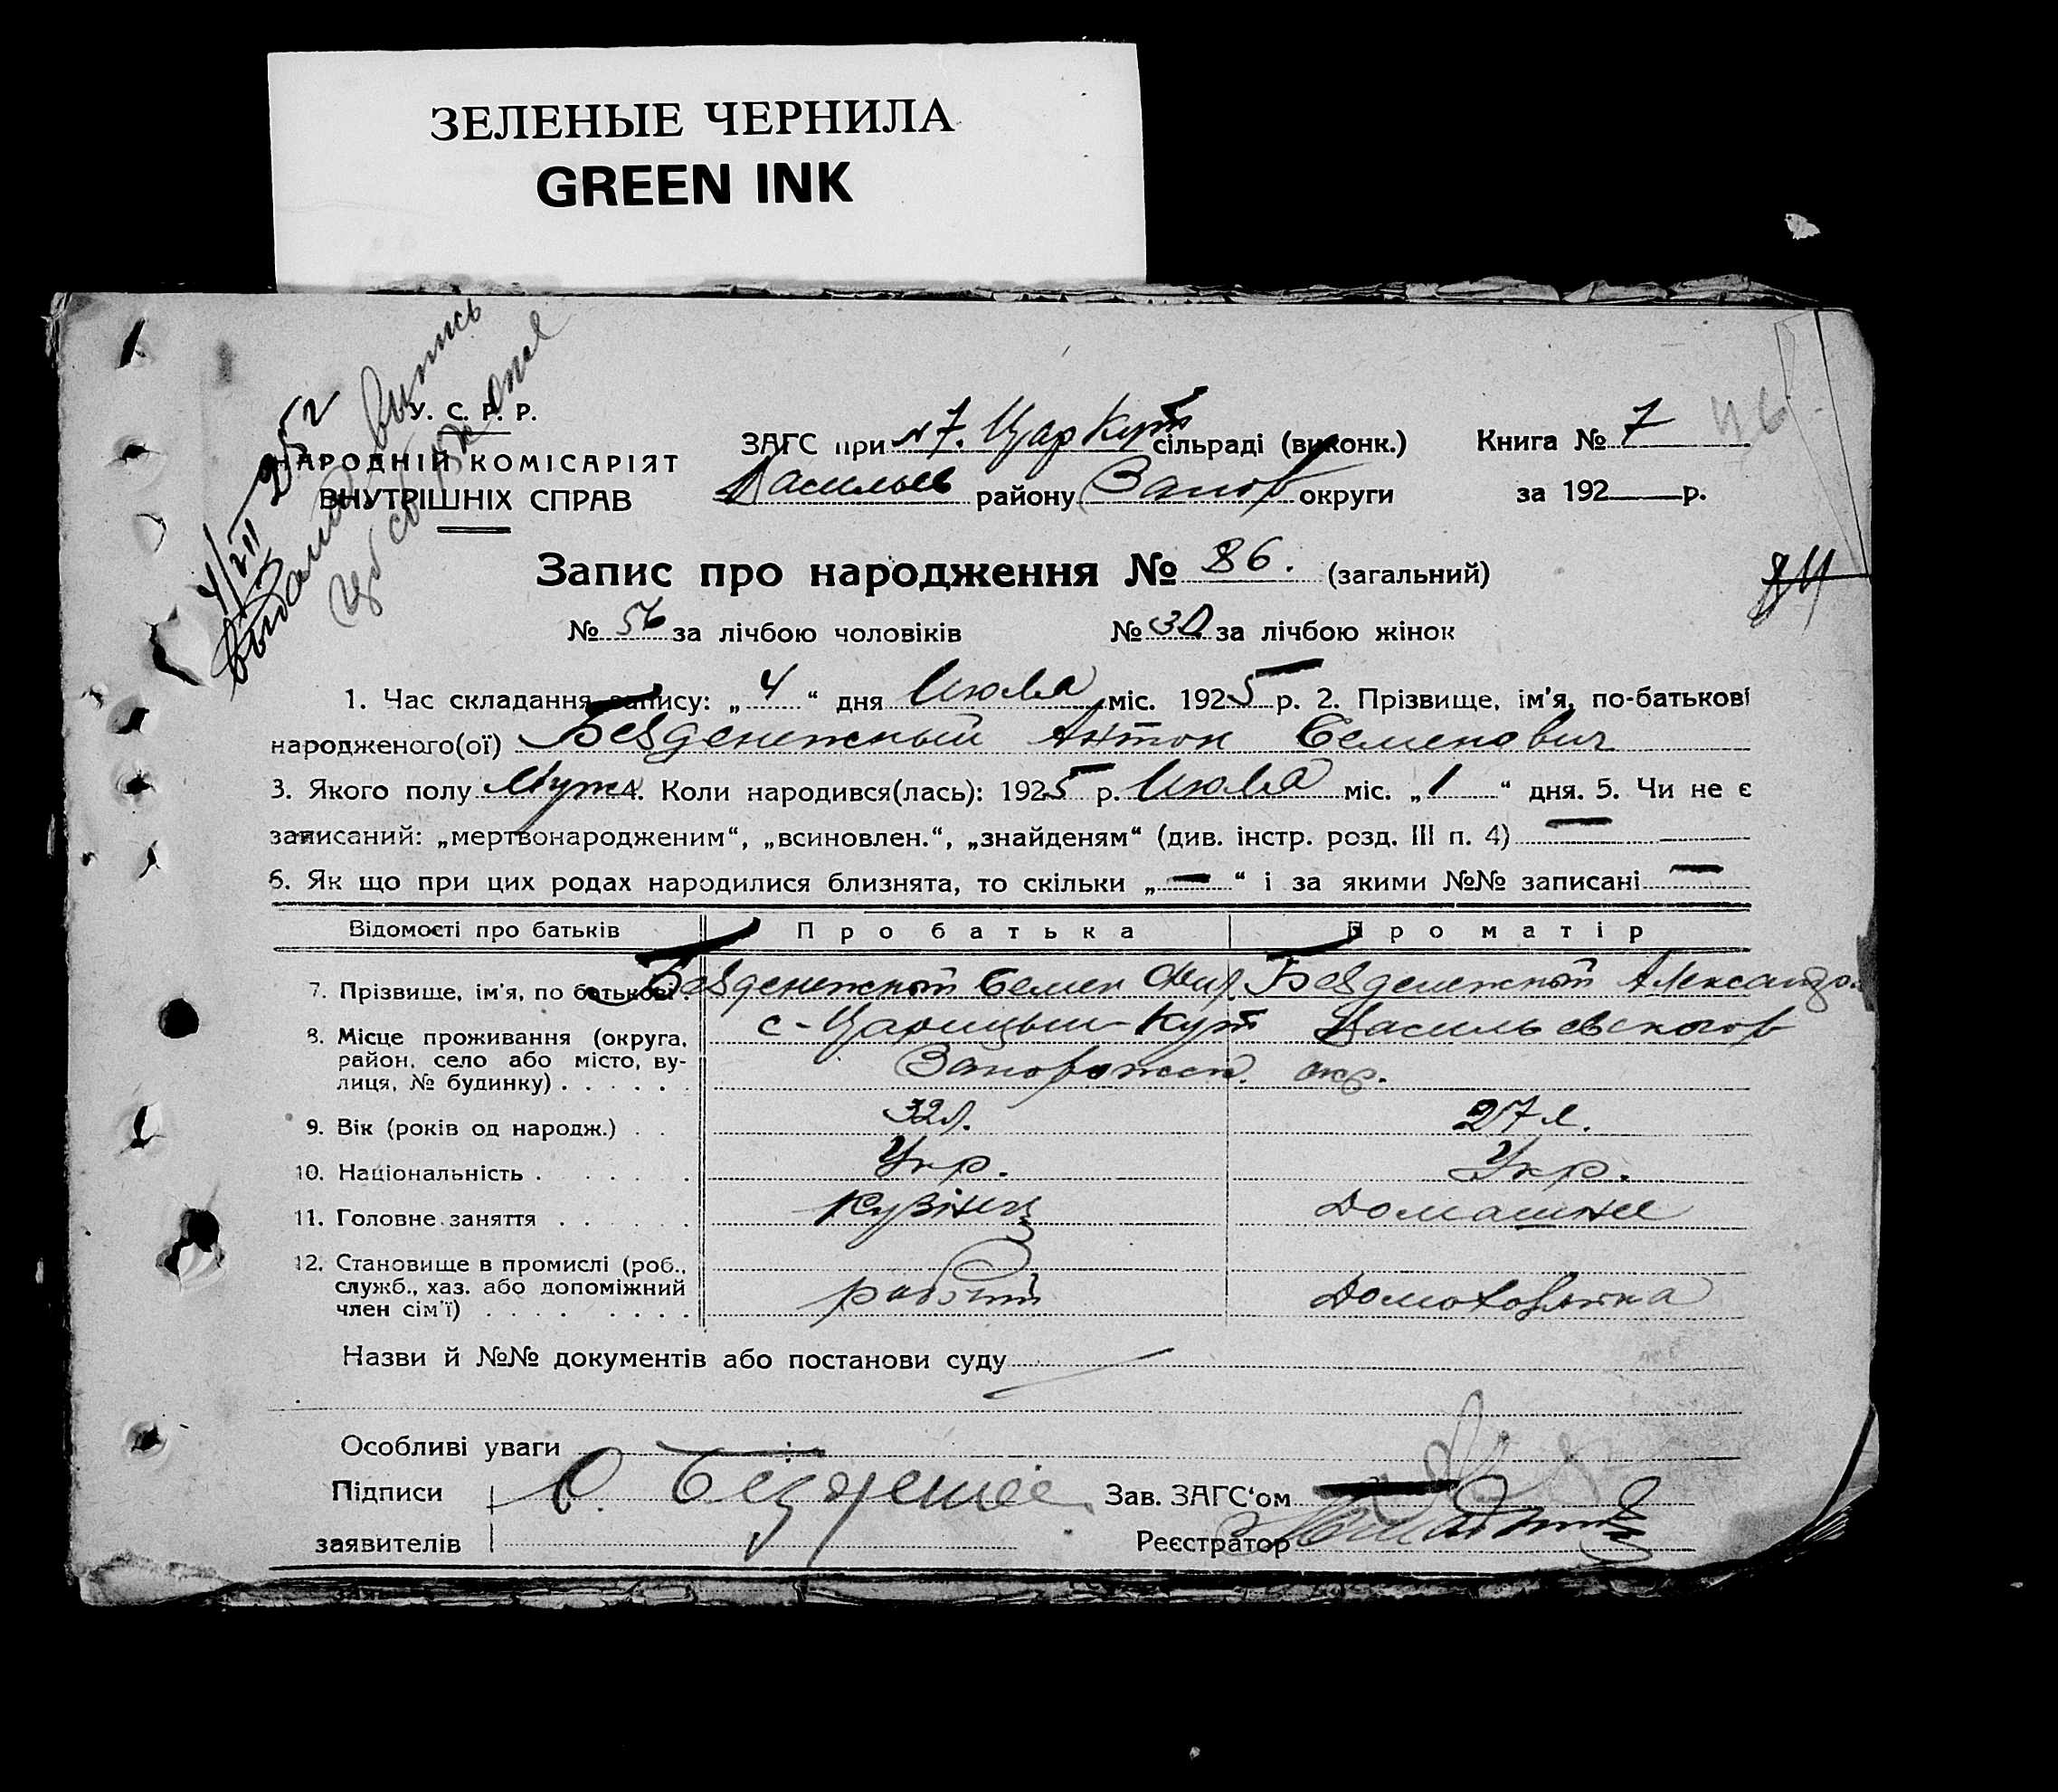 ЗЕЛЕНЫЕ ЧЕРНИЛА
GREEN INK
У. С. Р. Р.
НАРОДНІЙ КОМІСАРІЯТ
ВНУТРІШНІХ СПРАВ
ЗАГС при №7. Цар Кут сільраді (виконк.)
Васильев району Запор округи
Книга № 7
46
за 192 р.
84
Запис про народження № 86. (загальний)
№ 56 за лічбою чоловіків № 30 за лічбою жінок
1. Час складання запису: „ 4 “ дня Июля міс. 1925 р. 2. Прізвище, ім'я, по-батькові
народженого(ої) Безденежный Антон Семенович
3. Якого полу Муж 4. Коли народився(лась): 1925 р. Июля міс. „ 1 “ дня. 5. Чи не є
записаний: „мертвонародженим“, „всиновлен.“, „знайденям“ (див. інстр. розд. III п. 4) —
6. Як що при цих родах народилися близнята, то скільки „ — “ і за якими №№ записані —
Відомості про батьків Про батька Про матір
7. Прізвище, ім'я, по батькові. Безденежный Семен Безденежный Александра
8. Місце проживання (округа, с-Царицын-Кут
район, село або місто, ву-
лиця, № будинку) . . . . . Запорожск. окр.
9. Вік (років од народж.) . . 32л. 27л.
10. Національність . . . . . . Укр. Укр.
11. Головне заняття . . . . . кузінец Домашнее
12. Становище в промислі (роб.,
служб., хаз. або допоміжний
член сім'ї) . . . . . . . . рабочий Домохозяйка
Назви й №№ документів або постанови суду
Особливі уваги
Підписи
заявителів
Зав. ЗАГС‘ом
Реєстратор